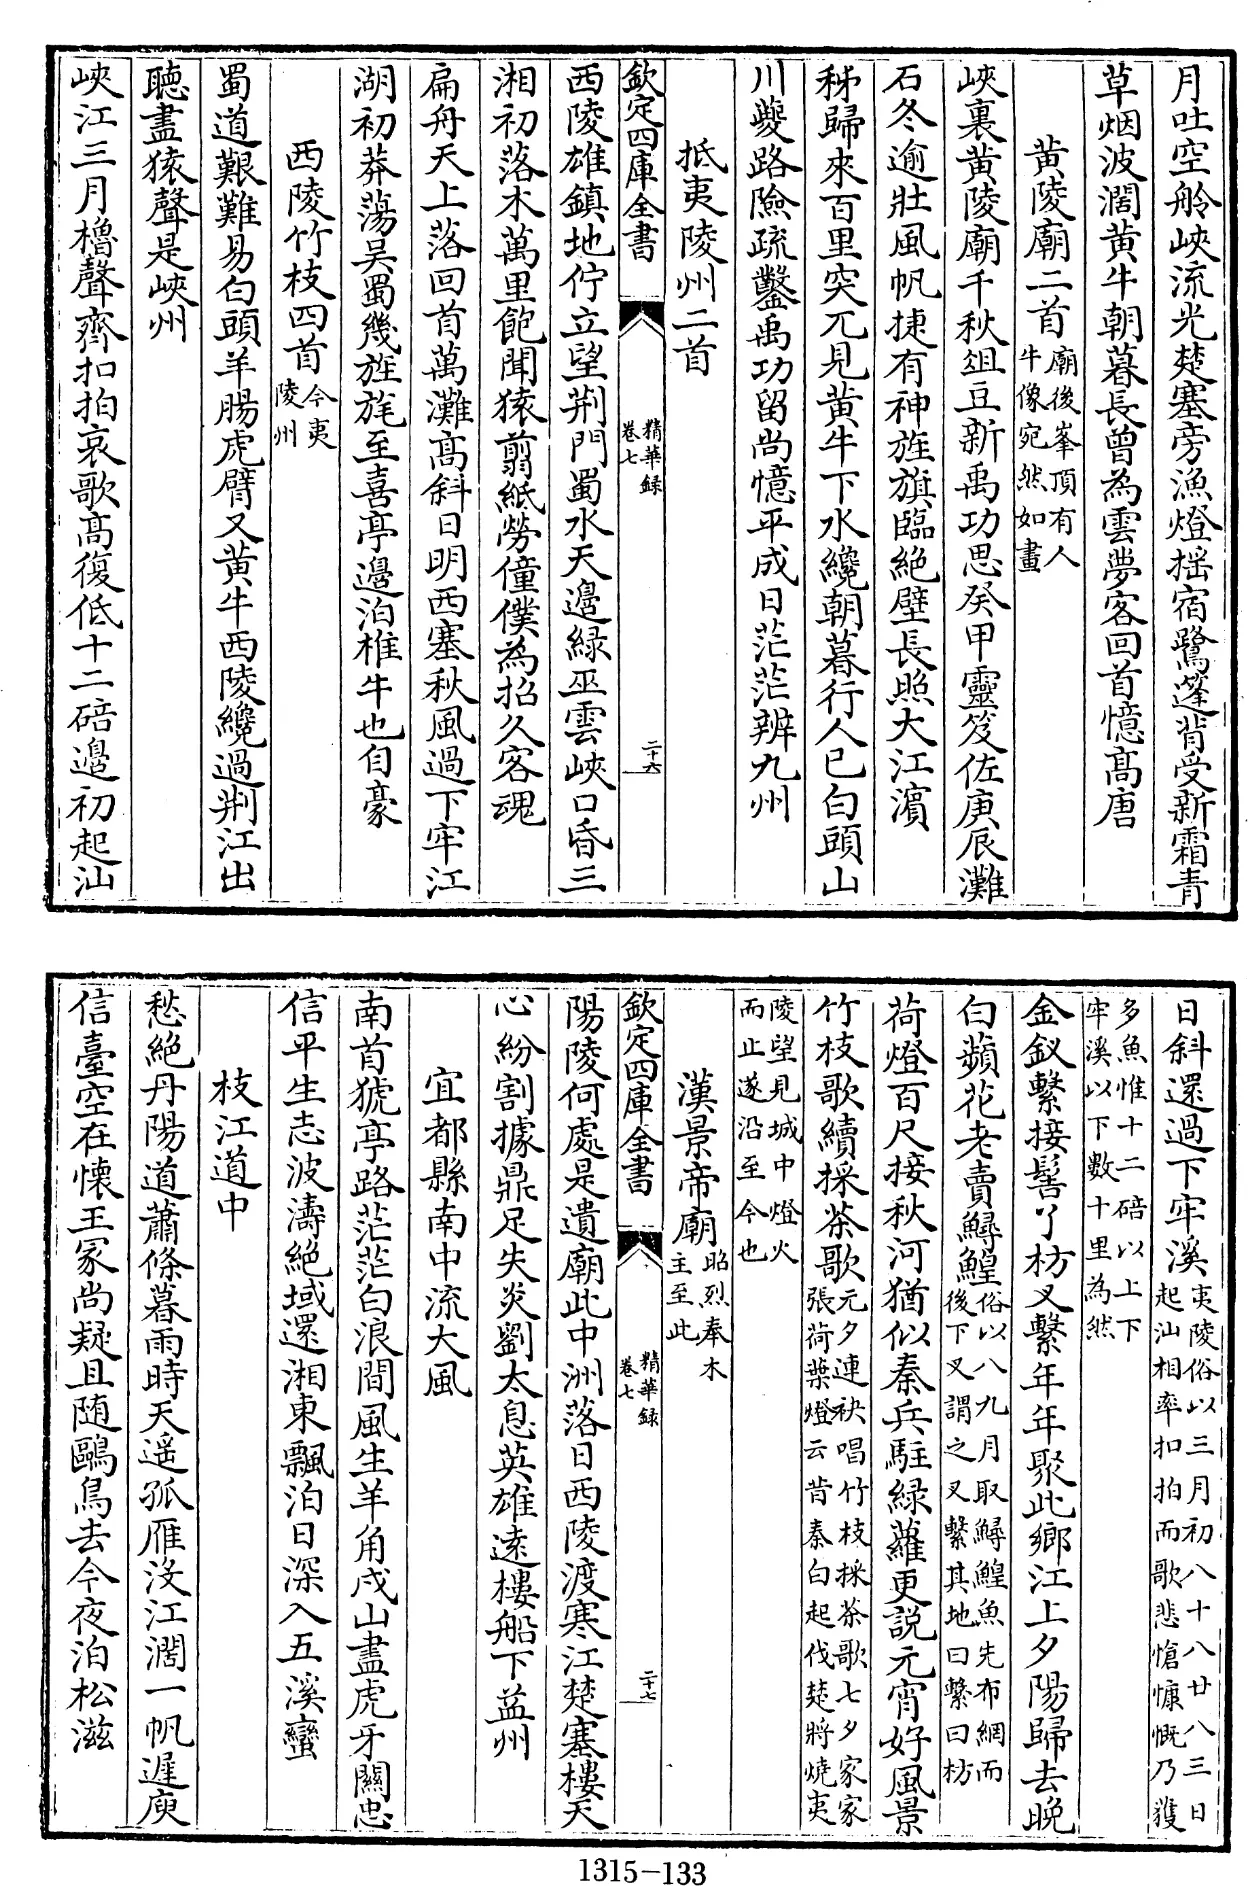 月吐空舲峽流光楚塞旁漁燈揺宿鷺篷背受新霜青
草烟波濶黄牛朝暮長曾為雲夢客回首憶髙唐
黄陵廟二首廟後峯頂有人
牛像宛然如畫
峽裏黄陵廟千秋俎豆新禹功思癸甲靈笈佐庚辰灘
石冬逾壯風帆捷有神旌旗臨絶壁長照大江濱
秭歸來百里突兀見黄牛下水纔朝暮行人已白頭山
川夔路險疏鑿禹功留尚憶平成日茫茫辨九州
抵夷陵州二首
欽定四庫全書
精華録
卷七
二十六
西陵雄鎮地佇立望荆門蜀水天邉緑巫雲峽口昏三
湘初落木萬里飽聞猿翦紙勞僮僕為招久客魂
扁舟天上落回首萬灘髙斜日明西塞秋風過下牢江
湖初莽蕩吴蜀幾旌旄至喜亭邉泊椎牛也自豪
西陵竹枝四首今夷
陵州
蜀道艱難易白頭羊腸虎臂又黄牛西陵纔過荆江出
聽盡猿聲是峽州
峽江三月櫓聲齊扣拍哀歌髙復低十二碚邉初起汕
日斜還過下牢溪夷陵俗以三月初八十八廿八三日
起汕相率扣拍而歌悲愴慷慨乃獲
多魚惟十二碚以上下
牢溪以下數十里為然
金釵繫接髻丫枋叉繫年年聚此鄉江上夕陽歸去晚
白蘋花老賣鱘鰉俗以八九月取鱘鰉魚先布網而
後下叉謂之叉繫其地曰繫曰枋
荷燈百尺接秋河猶似秦兵駐緑蘿更説元宵好風景
竹枝歌續採茶歌元夕連袂唱竹枝採茶歌七夕家家
張荷葉燈云昔秦白起伐楚將燒夷
陵望見城中燈火
而止遂沿至今也
漢景帝廟昭烈奉木
主至此
欽定四庫全書
精華録
卷七
二十七
陽陵何處是遺廟此中洲落日西陵渡寒江楚塞樓天
心紛割據鼎足失炎劉太息英雄逺樓船下益州
宜都縣南中流大風
南首猇亭路茫茫白浪間風生羊角戍山盡虎牙關忠
信平生志波濤絶域還湘東飄泊日深入五溪蠻
枝江道中
愁絶丹陽道蕭條暮雨時天遥孤雁没江濶一帆遲庾
信臺空在懐王冢尚疑且随鷗鳥去今夜泊松滋
1315-133